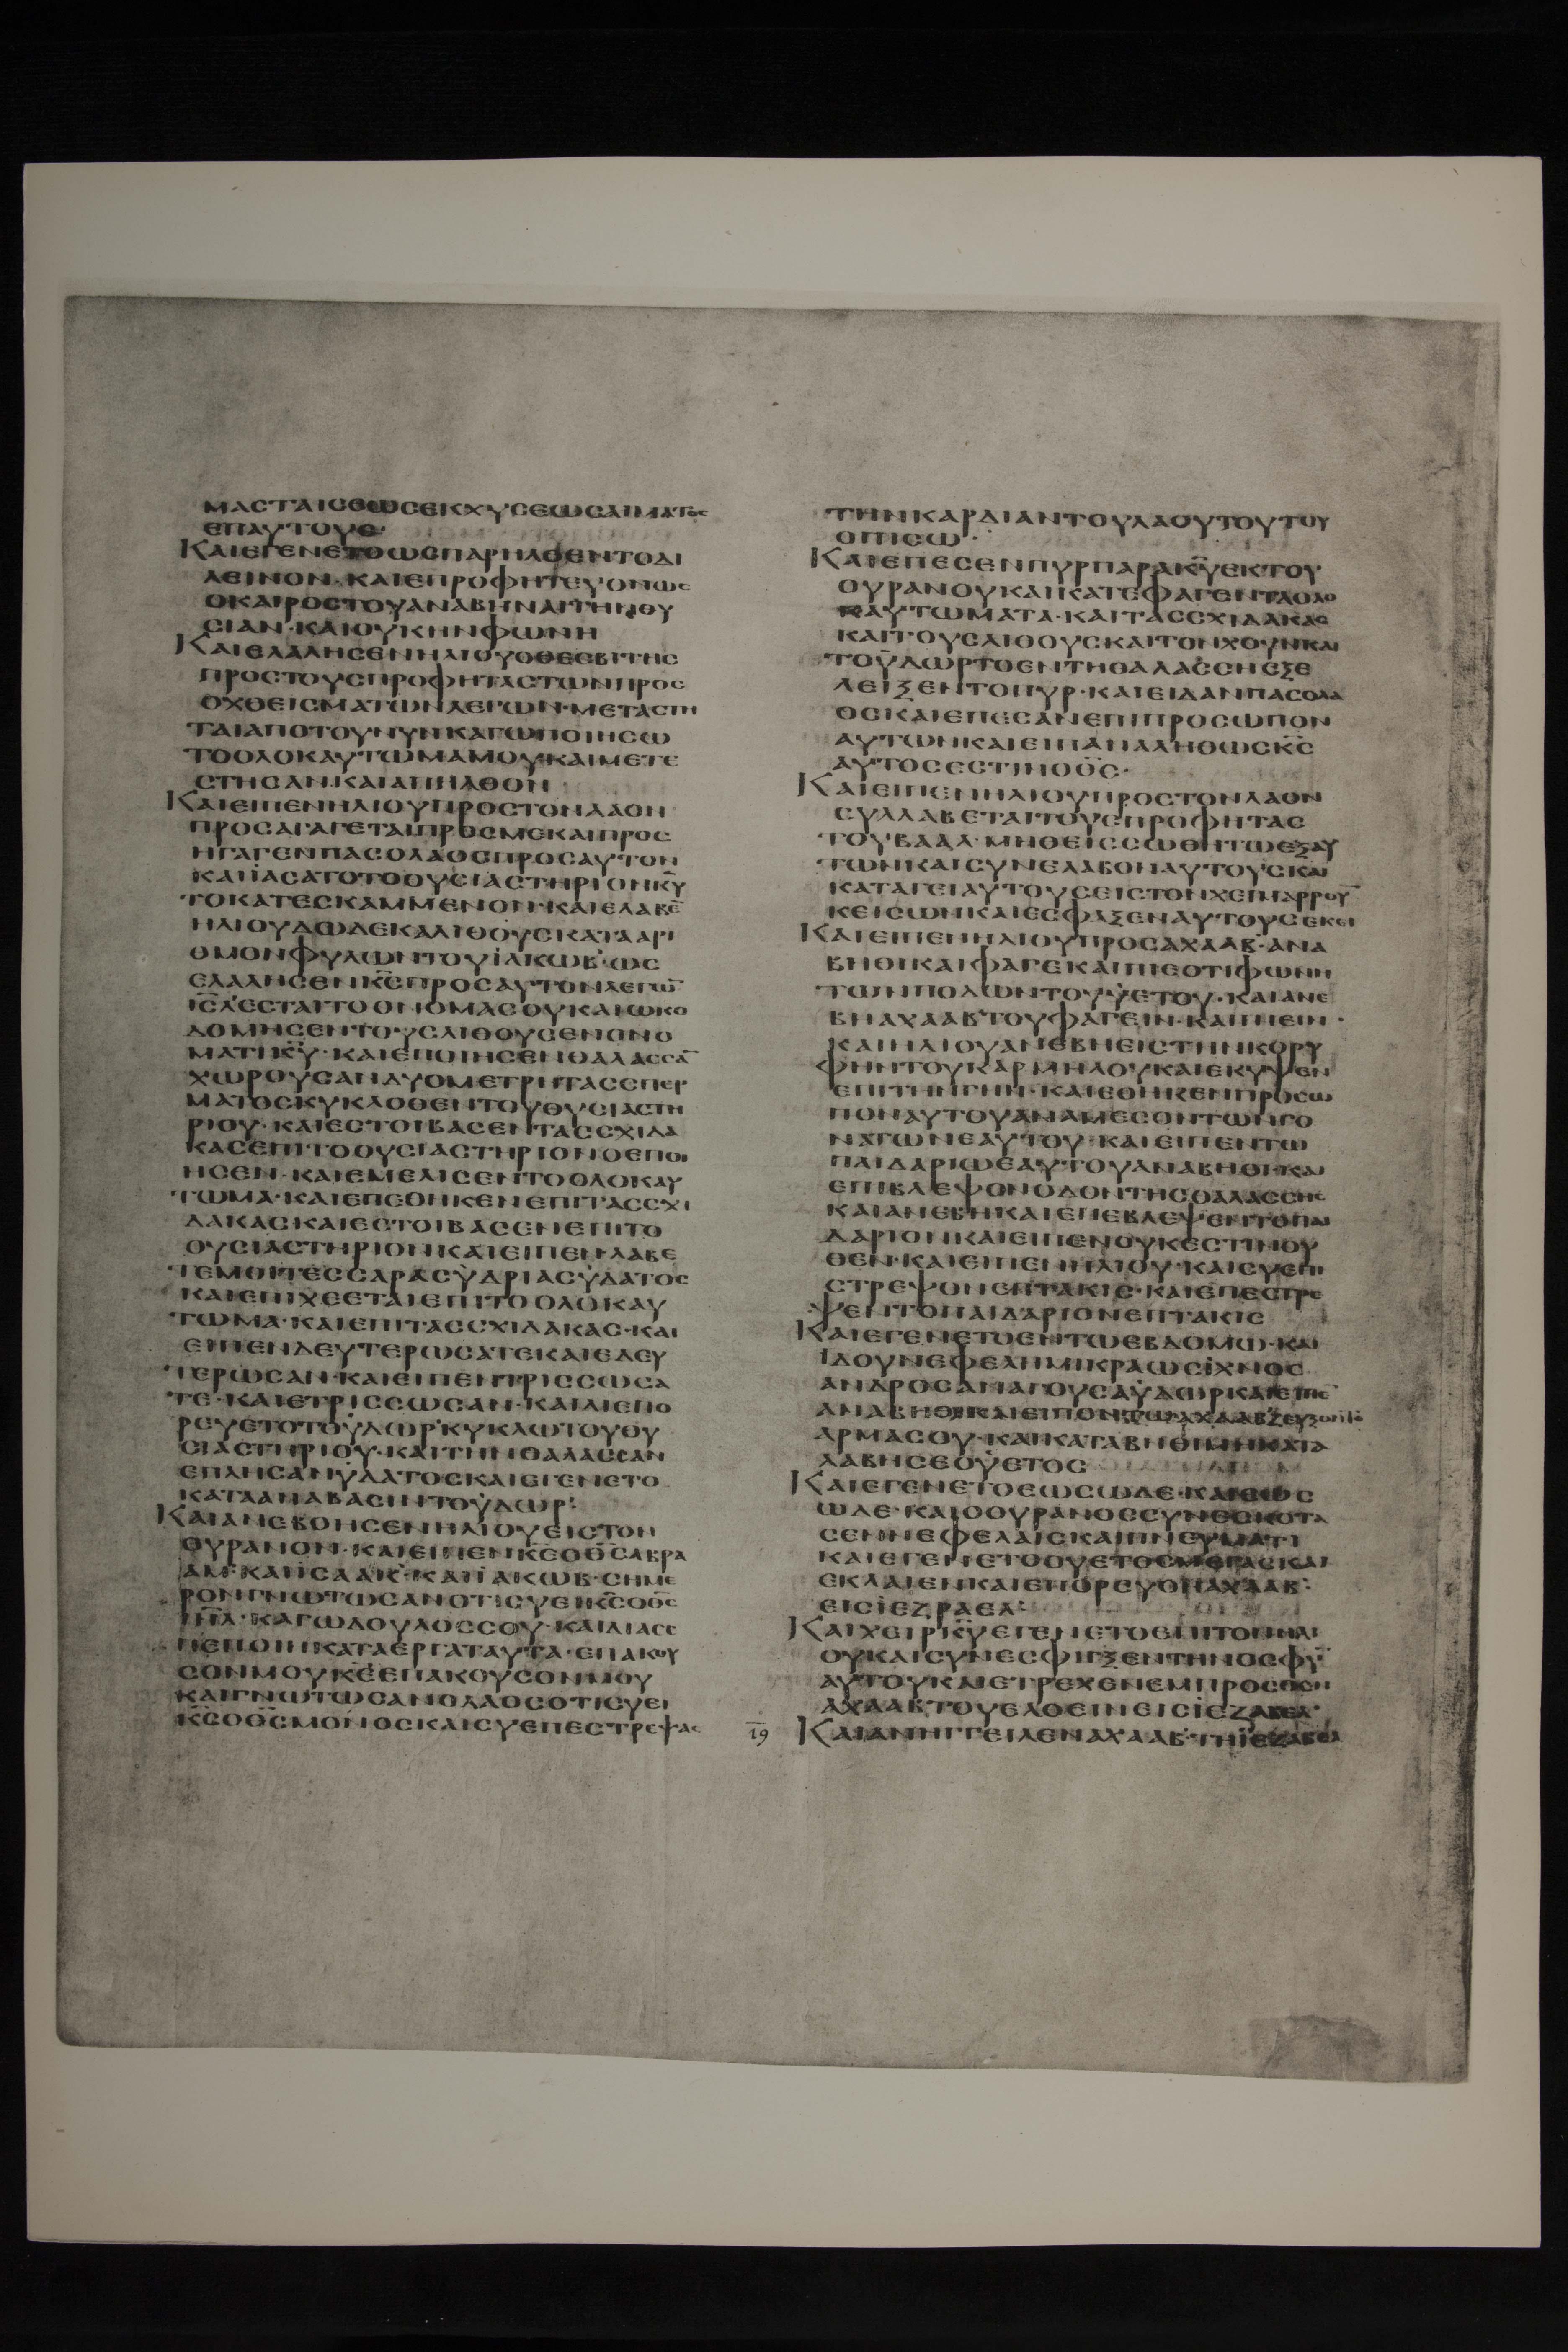 ΜΑCΤΑΙCΕΩCΕΚΧΥCΕΩCΑΙΜΑΤΟC
ΕΠΑΥΤΟΥC·
ΚΑΙΕΓΕΝΕΤΟΩCΠΑΡΗΛΘΕΝΤΟΔΙ
ΛΕΙΝΟΝ·ΚΑΙΕΠΡΟΦΗΤΕΥΟΝΩC
ΟΚΑΙΡΟCΤΟΥΑΝΑΒΗΝΑΙΤΗΝΘΥ
CΙΑΝ·ΚΑΙΟΥΚΗΝΦΩΝΗ
ΚΑΙΕΛΑΛΗCΕΝΗΛΙΟΥΟΘΕCΒΙΤΗC
ΠΡΟCΤΟΥCΠΡΟΦΗΤΑCΤΩΝΠΡΟC
ΟΧΘΕΙCΜΑΤΩΝΛΕΓΩΝ·ΜΕΤΑCΤΗ
ΤΑΙΑΠΟΤΟΥΝΥΝΚΑΓΩΠΟΙΗCΩ
ΤΟΟΛΟΚΑΥΤΩΜΑΜΟΥΚΑΙΜΕΤΕ
CΤΗCΑΝ·ΚΑΙΑΠΗΛΘΟΝ
ΚΑΙΕΙΠΕΝΗΛΙΟΥΠΡΟCΤΟΝΛΑΟΝ
ΠΡΟCΑΓΑΓΕΤΑΙΠΡΟCΜΕΚΑΙΠΡΟC
ΗΓΑΓΕΝΠΑCΟΛΑΟCΠΡΟCΑΥΤΟΝ
ΚΑΙΪΑCΑΤΟΤΟΘΥCΙΑCΤΗΡΙΟΝΚ̅Υ̅
ΤΟΚΑΤΕCΚΑΜΜΕΝΟΝ·ΚΑΙΕΛΑΒΕ̅
ΗΛΙΟΥΔΩΔΕΚΑΛΙΘΟΥCΚΑΤΑΑΡΙ
ΘΜΟΝΦΥΛΩΝΤΟΥΪΑΚΩΒ·ΩC
ΕΛΑΛΗCΕΝΚ̅C̅ΠΡΟCΑΥΤΟΝΛΕΓΩ̅
ΙCΛΕCΤΑΙΤΟΟΝΟΜΑCΟΥΚΑΙΩΚΟ
ΔΟΜΗCΕΝΤΟΥCΛΙΘΟΥCΕΝΟΝΟ
ΜΑΤΙΚ̅Υ̅·ΚΑΙΕΠΟΙΗCΕΝΘΑΛΑCCΑ̅
ΧΩΡΟΥCΑΝΔΥΟΜΕΤΡΗΤΑCCΠΕΡ
ΜΑΤΟCΚΥΚΛΟΘΕΝΤΟΥΘΥCΙΑCΤΗ
ΡΙΟΥ·ΚΑΙΕCΤΟΙΒΑCΕΝΤΑCCΧΙΔΑ
ΚΑCΕΠΙΤΟΘΥCΙΑCΤΗΡΙΟΝΟΕΠΟΙ
ΗCΕΝ·ΚΑΙΕΜΕΛΙCΕΝΤΟΟΛΟΚΑΥ
ΤΩΜΑ·ΚΑΙΕΠΕΘΗΚΕΝΕΠΙΤΑCCΧΙ
ΔΑΚΑCΚΑΙΕCΤΟΙΒΑCΕΝΕΠΙΤΟ
ΘΥCΙΑCΤΗΡΙΟΝΚΑΙΕΙΠΕΝΛΑΒΕ
ΤΕΜΟΙΤΕCCΑΡΑCΫΔΡΙΑCΫΔΑΤΟC
ΚΑΙΕΠΙΧΕΕΤΑΙΕΠΙΤΟΟΛΟΚΑΥ
ΤΩΜΑ·ΚΑΙΕΠΙΤΑCCΧΙΔΑΚΑC·ΚΑΙ
ΕΙΠΕΝΔΕΥΤΕΡΩCΑΤΕΚΑΙΕΔΕΥ
ΤΕΡΩCΑΝ·ΚΑΙΕΙΠΕΝΤΡΙCCΩCΑ
ΤΕ·ΚΑΙΕΤΡΙCCΩCΑΝ·ΚΑΙΔΙΕΠΟ
ΡΕΥΕΤΟΤΟΫΔΩΡΚΥΚΛΩΤΟΥΘΥ
CΙΑCΤΗΡΙΟΥ·ΚΑΙΤΗΝΘΑΛΑCCΑΝ
ΕΠΛΗCΑΝΫΔΑΤΟCΚΑΙΕΓΕΝΕΤΟ
ΚΑΤΑΑΝΑΒΑCΙΝΤΟΫΔΩΡ·
ΚΑΙΑΝΕΒΟΗCΕΝΗΛΙΟΥΕΙCΤΟΝ
ΟΥΡΑΝΟΝ·ΚΑΙΕΙΠΕΝΚ̅C̅ΟΘ̅C̅ΑΒΡΑ
ΑΜ·ΚΑΙΪCΑΑΚ·ΚΑΙΪΑΚΩΒ·CΗΜΕ
ΡΟΝΓΝΩΤΩCΑΝΟΤΙCΥΕΙΚ̅C̅ΟΘ̅C̅
Ι̅Η̅Λ̅·ΚΑΓΩΔΟΥΛΟCCΟΥ·ΚΑΙΔΙΑCΕ
ΠΕΠΟΙΗΚΑΤΑΕΡΓΑΤΑΥΤΑ·ΕΠΑΚΟΥ
CΟΝΜΟΥΚ̅Ε̅ΕΠΑΚΟΥCΟΝΜΟΥ
ΚΑΙΓΝΩΤΩCΑΝΟΛΑΟCΟΤΙCΥΕΙ
Κ̅C̅ΟΘ̅C̅ΜΟΝΟCΚΑΙCΥΕΠΕCΤΡΕΨΑC
ΤΗΝΚΑΡΔΙΑΝΤΟΥΛΑΟΥΤΟΥΤΟΥ
ΟΠΙCΩ·
ΚΑΙΕΠΕCΕΝΠΥΡΠΑΡΑΚ̅Υ̅ΕΚΤΟΥ
ΟΥΡΑΝΟΥΚΑΙΚΑΤΕΦΑΓΕΝΤΑΟΛΟ
ΚΑΥΤΩΜΑΤΑ·ΚΑΙΤΑCCΧΙΔΑΚΑC
ΚΑΙΤΟΥCΛΙΘΟΥCΚΑΙΤΟΝΧΟΥΝΚΑΙ
ΤΟΫΔΩΡΤΟΕΝΤΗΘΑΛΑCCΗΕΞΕ
ΛΕΙΞΕΝΤΟΠΥΡ·ΚΑΙΕΙΔΑΝΠΑCΟΛΑ
ΟCΚΑΙΕΠΕCΑΝΕΠΙΠΡΟCΩΠΟΝ
ΑΥΤΩΝΚΑΙΕΙΠΑΝΑΛΗΘΩCΚ̅C̅
ΑΥΤΟCΕCΤΙΝΟΘ̅C̅·
ΚΑΙΕΙΠΕΝΗΛΙΟΥΠΡΟCΤΟΝΛΑΟΝ
CΥΛΛΑΒΕΤΑΙΤΟΥCΠΡΟΦΗΤΑC
ΤΟΥΒΑΑΛ·ΜΗΘΕΙCCΩΘΗΤΩΕΞΑΥ
ΤΩΝΚΑΙCΥΝΕΛΑΒΟΝΑΥΤΟΥCΚΑΙ
ΚΑΤΑΓΕΙΑΥΤΟΥCΕΙCΤΟΝΧΕΙΜΑΡΡΟΥ̅
ΚΕΙCΩΝΚΑΙΕCΦΑΞΕΝΑΥΤΟΥCΕΚΕΙ
ΚΑΙΕΙΠΕΝΗΛΙΟΥΠΡΟCΑΧΑΑΒ·ΑΝΑ
ΒΗΘΙΚΑΙΦΑΓΕΚΑΙΠΙΕΟΤΙΦΩΝΗ
ΤΩΝΠΟΔΩΝΤΟΥΫΕΤΟΥ·ΚΑΙΑΝΕ
ΒΗΑΧΑΑΒΤΟΥΦΑΓΕΙΝ·ΚΑΙΠΙΕΙΝ·
ΚΑΙΗΛΙΟΥΑΝΕΒΗΕΙCΤΗΝΚΟΡΥ
ΦΗΝΤΟΥΚΑΡΜΗΛΟΥΚΑΙΕΚΥΨΕΝ
ΕΠΙΤΗΝΓΗΝ·ΚΑΙΕΘΗΚΕΝΠΡΟCΩ
ΠΟΝΑΥΤΟΥΑΝΑΜΕCΟΝΤΩΝΓΟ
ΝΑΤΩΝΕΑΥΤΟΥ·ΚΑΙΕΙΠΕΝΤΩ
ΠΑΙΔΑΡΙΩΕΑΥΤΟΥΑΝΑΒΗΘΙ·ΚΑΙ
ΕΠΙΒΛΕΨΟΝΟΔΟΝΤΗCΘΑΛΑCCΗC
ΚΑΙΑΝΕΒΗΚΑΙΕΠΕΒΛΕΨΕΝΤΟΠΑΙ
ΔΑΡΙΟΝΚΑΙΕΙΠΕΝΟΥΚΕCΤΙΝΟΥ
ΘΕΝ·ΚΑΙΕΙΠΕΝΗΛΙΟΥ·ΚΑΙCΥΕΠΙ
CΤΡΕΨΟΝΕΠΤΑΚΙC·ΚΑΙΕΠΕCΤΡΕ
ΨΕΝΤΟΠΑΙΔΑΡΙΟΝΕΠΤΑΚΙC
ΚΑΙΕΓΕΝΕΤΟΕΝΤΩΕΒΔΟΜΩ·ΚΑΙ
ΪΔΟΥΝΕΦΕΛΗΜΙΚΡΑΩCΪΧΝΟC
ΑΝΔΡΟCΑΝΑΓΟΥCΑΫΔΩΡΚΑΙΕΙΠΕ̅
ΑΝΑΒΗΘΙΚΑΙΕΙΠΟΝΤΩΑΧΑΑΒΖΕΥΞΟΝΤΟ
ΑΡΜΑCΟΥ·ΚΑΙΚΑΤΑΒΗΘΙΜΗΚΑΤΑ
ΛΑΒΗCΕΟΫΕΤΟC
ΚΑΙΕΓΕΝΕΤΟΕΩCΩΔΕ·ΚΑΙΕΩC
ΩΔΕ·ΚΑΙΟΟΥΡΑΝΟCCΥΝΕCΚΟΤΑ
CΕΝΝΕΦΕΛΑΙCΚΑΙΠΝΕΥΜΑΤΙ
ΚΑΙΕΓΕΝΕΤΟΟΥΕΤΟCΜΕΓΑCΚΑΙ
ΕΚΛΑΙΕΝΚΑΙΕΠΟΡΕΥΟΝΑΧΑΑΒ·
ΕΙCΪΕΖΡΑΕΛ·
ΚΑΙΧΕΙΡΚ̅Υ̅ΕΓΕΝΕΤΟΕΠΙΤΟΝΗΛΙ
ΟΥΚΑΙCΥΝΕCΦΙΓΞΕΝΤΗΝΟCΦΥ̅
ΑΥΤΟΥΚΑΙΕΤΡΕΧΕΝΕΜΠΡΟCΘΕΝ
ΑΧΑΑΒΤΟΥΕΛΘΕΙΝΕΙCΪΕΖΑΒΕΛ·
ΙϚ ΚΑΙΑΝΗΓΓΕΙΛΕΝΑΧΑΑΒ·ΤΗΪΕΖΑΒΕΛ